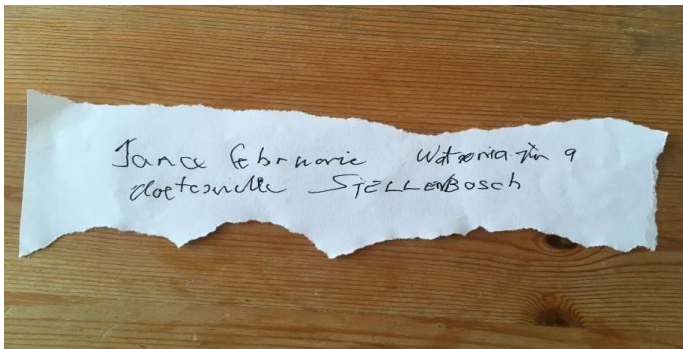 Jance Februarie Watsonia-yin 9
cloetesville STELLENBOSCH